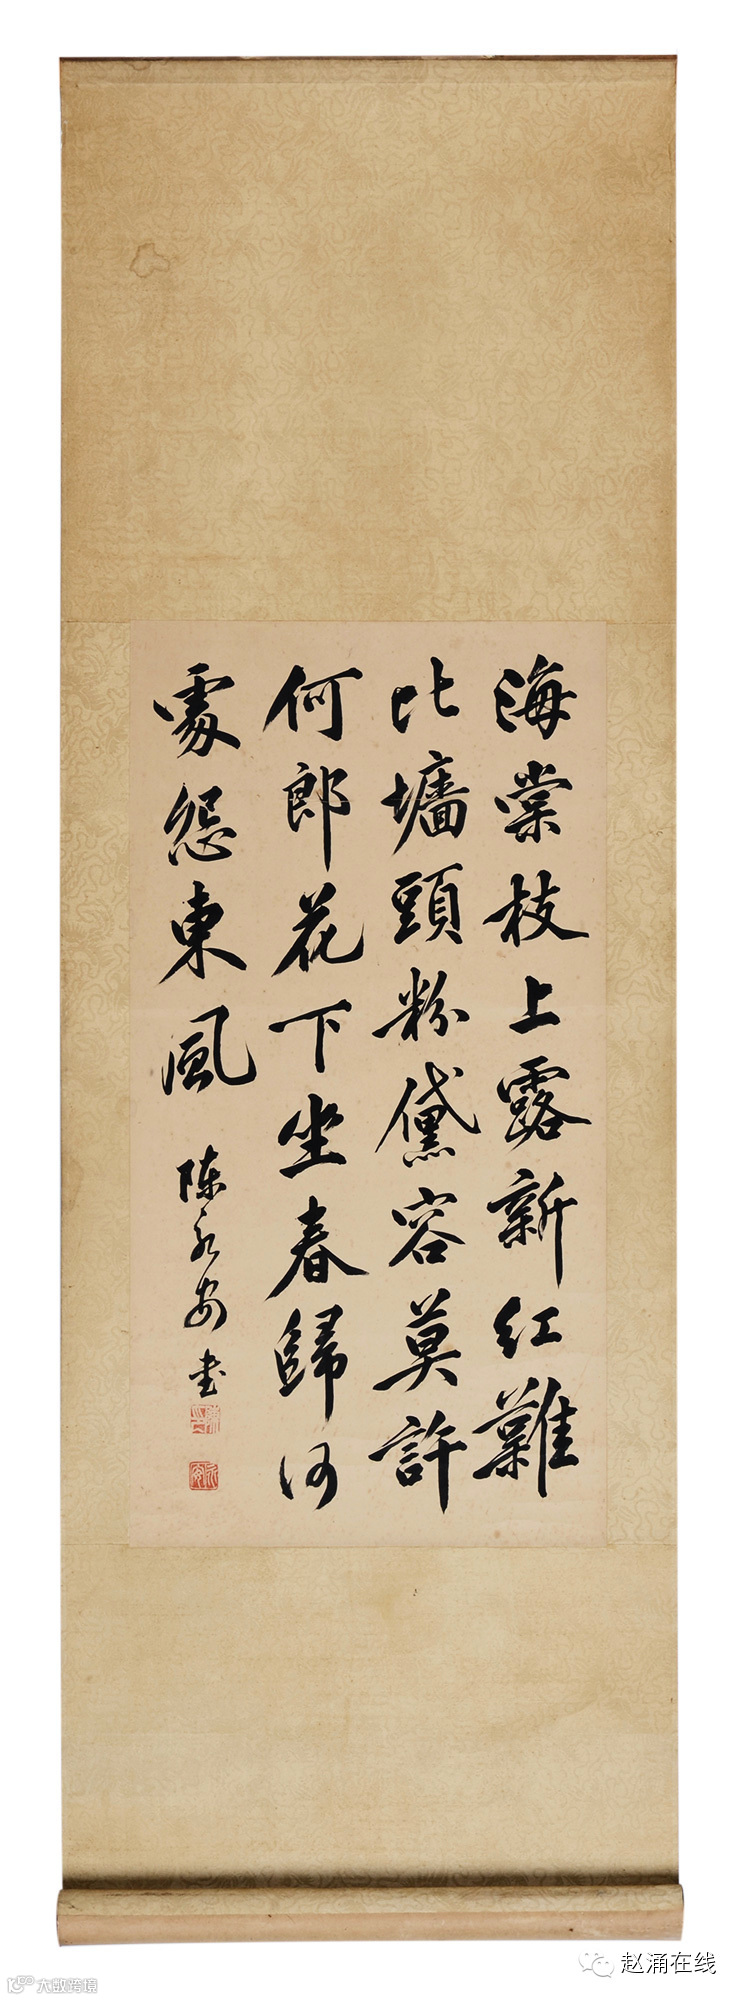 海棠枝上露新紅難
比墻頭粉黛容莫許
何郎花下坐春歸何
處怨東風
陳永安書
永安
赵涌在线
大数跨境